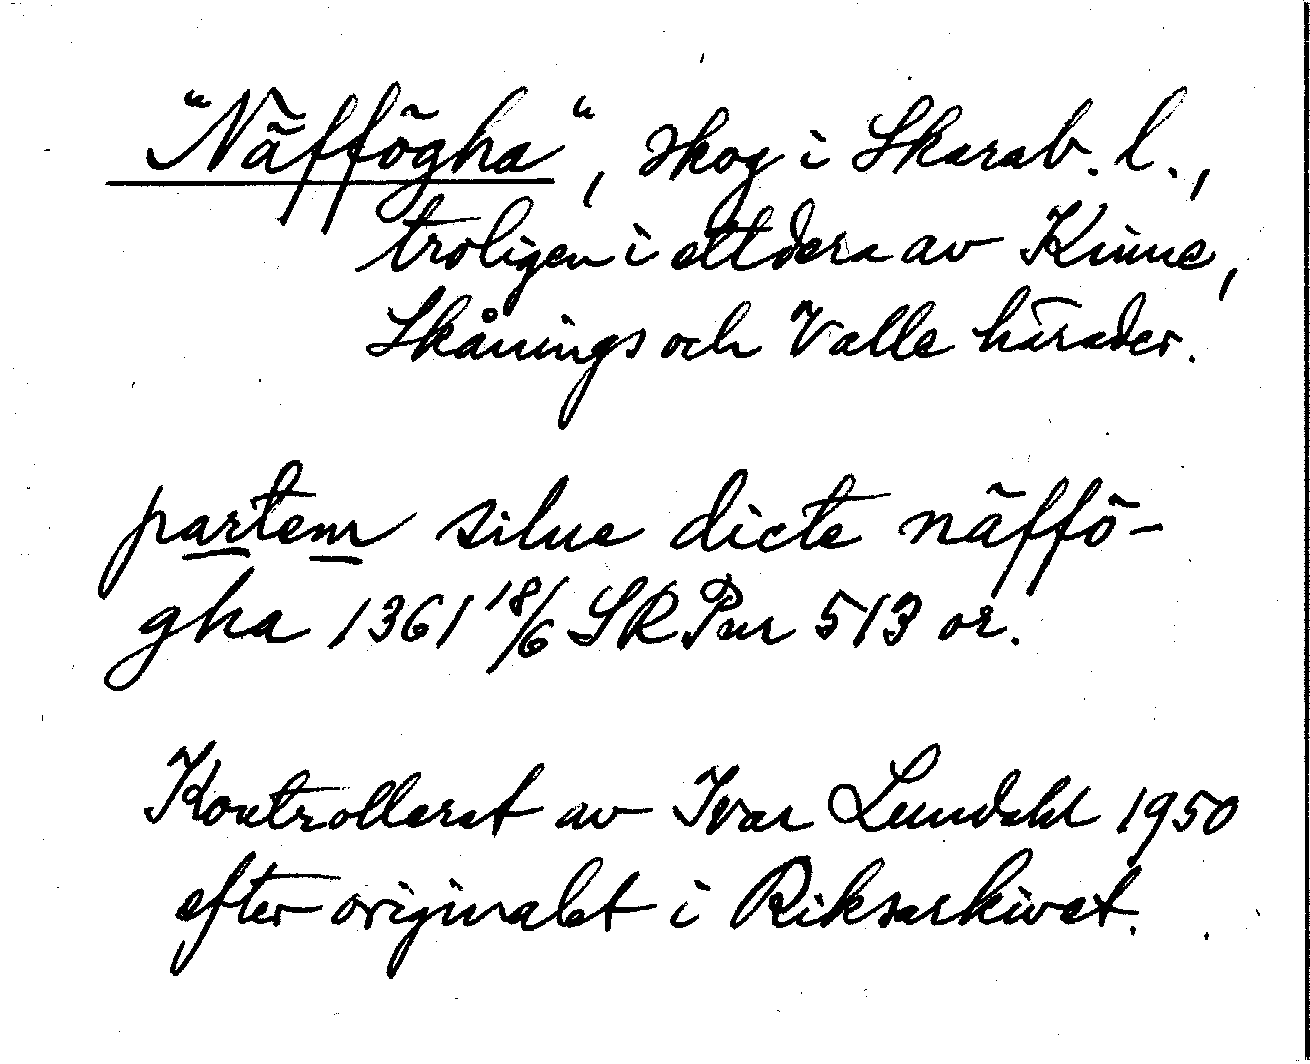 “Nãffõgha“, skog i Skarab. l.,
troligen i ettdera av Kinne,
Skånings och Valle härader.
partem silue dicte nãffõ-
gha 1361 18/6 SRPar 513 or.
Kontrollerat av Ivar Lundahl 1950
efter originalet i Riksarkivet.